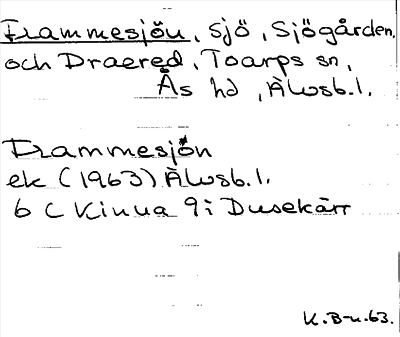 Frammesjön, sjö, Sjögården,
och Draered, Toarps sn,
Ås hd, Älvsb.l.
Frammesjön
ek (1963) Älvsb.l.
6 C Kinna 9i Dusekärr
K.B-n.63.